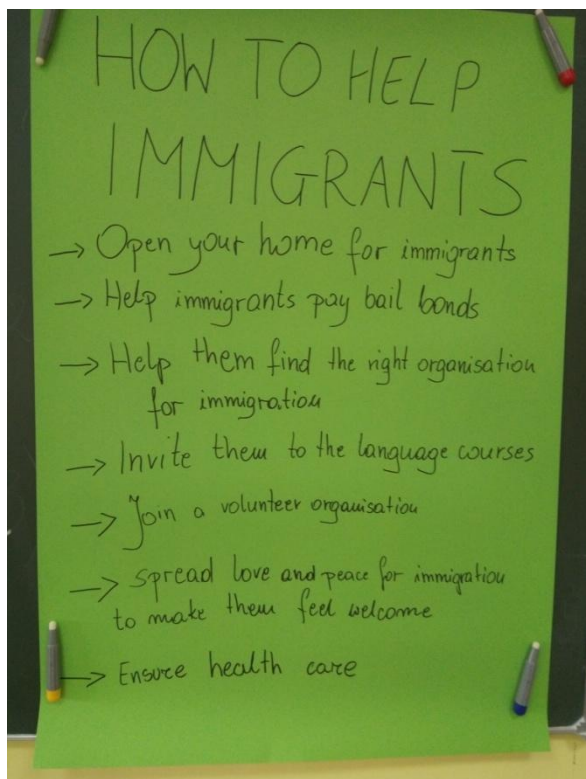 HOW TO HELP
IMMIGRANTS
→ Open your home for immigrants
→ Help immigrants pay bail bonds
→ Help them find the right organisation
for immigration
→ Invite them to the language courses
→ Join a volunteer organisation
→ Spread love and peace for immigration
to make them feel welcome
→ Ensure health care